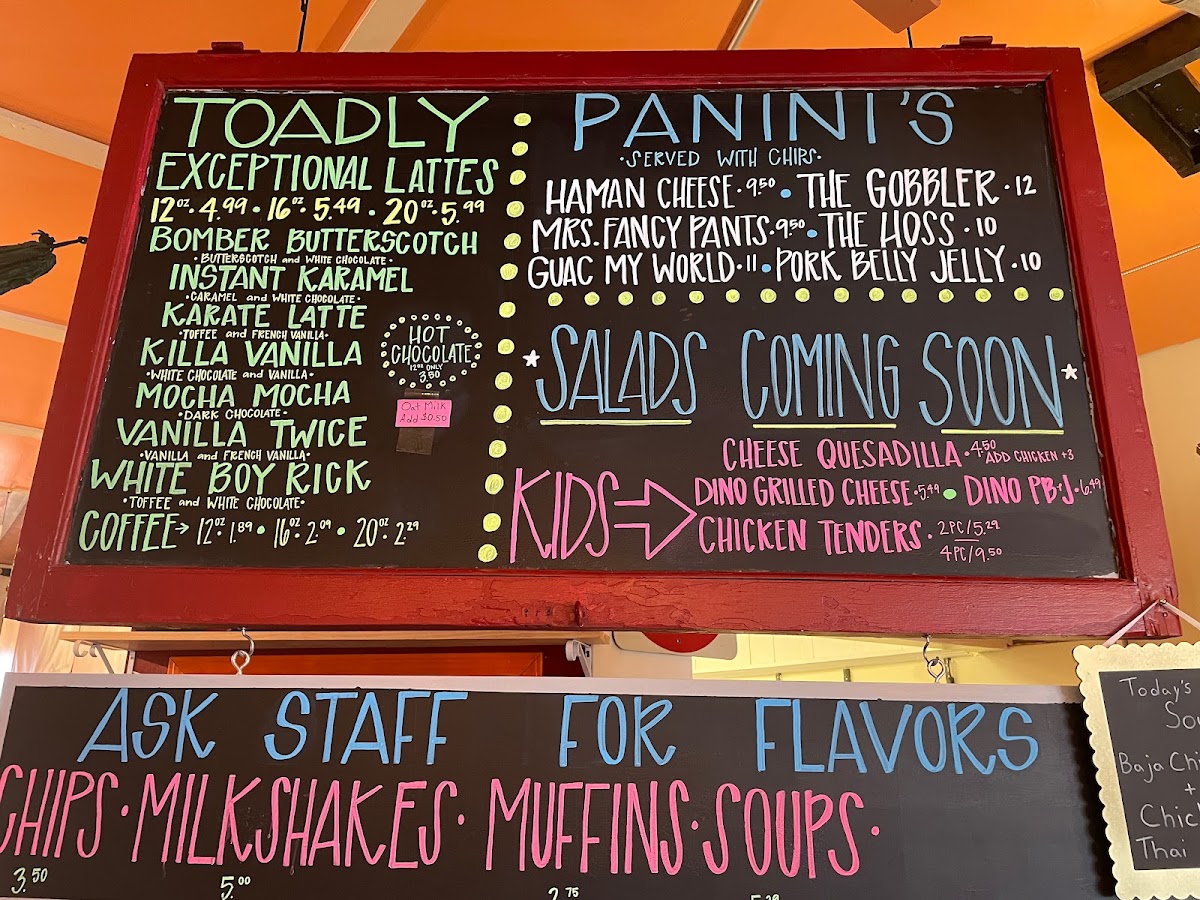 TOADLY
EXCEPTIONAL LATTES
12oz. 4.99 • 16oz 5.49 • 20oz. 5.99
BOMBER BUTTERSCOTCH
• BUTTERSCOTCH and WHITE CHOCOLATE •
INSTANT KARAMEL
• CARAMEL and WHITE CHOCOLATE •
KARATE LATTE
• TOFFEE and FRENCH VANILLA •
KILLA VANILLA
• WHITE CHOCOLATE and VANILLA •
MOCHA MOCHA
• DARK CHOCOLATE •
VANILLA TWICE
• VANILLA and FRENCH VANILLA •
WHITE BOY RICK
• TOFFEE and WHITE CHOCOLATE •
COFFEE → 12oz. 1.89 • 16oz 2.09 • 20oz 2.29
HOT
CHOCOLATE
12oz ONLY
3.50
Oat Milk
Add $0.50
PANINI'S
• SERVED WITH CHIPS •
HAMAN CHEESE • 9.50 • THE GOBBLER • 12
MRS. FANCY PANTS • 9.50 • THE HOSS • 10
GUAC MY WORLD • 11 • PORK BELLY JELLY • 10
SALADS COMING SOON
KIDS
CHEESE QUESADILLA • 4.50
ADD CHICKEN +3
DINO GRILLED CHEESE • 5.49 • DINO PB+J • 6.49
CHICKEN TENDERS • 2PC/5.29
4PC/9.50
ASK STAFF FOR FLAVORS
CHIPS • MILKSHAKES • MUFFINS • SOUPS •
3.50 5.00 2.75
Today's
Baja
+
Thai